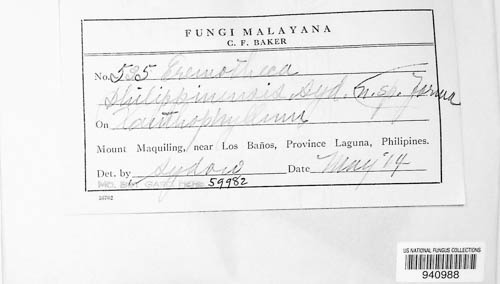 FUNGI MALAYANA
C. F. BAKER
No. 535 Eremotheca
philippinensis Syd. n. sp.
On Xanthophyllum
Mount Maquiling, near Los Baños, Province Laguna, Philipines.
Det. by Sydow Date May '14
MO. BOT. GARD. HERB. 59982
US NATIONAL FUNGUS COLLECTIONS
940988